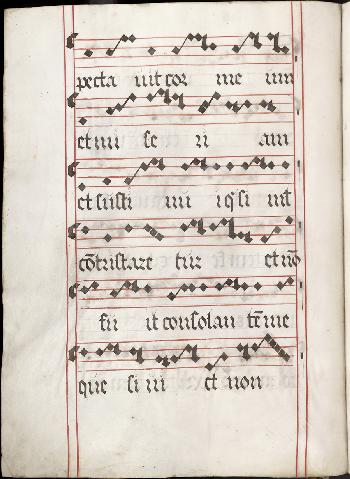 pecta uit cor me um
et mi se ri am
et susti nui q si mł
cōtristare tur et nō
fu it consolan tē me
que si ui et non